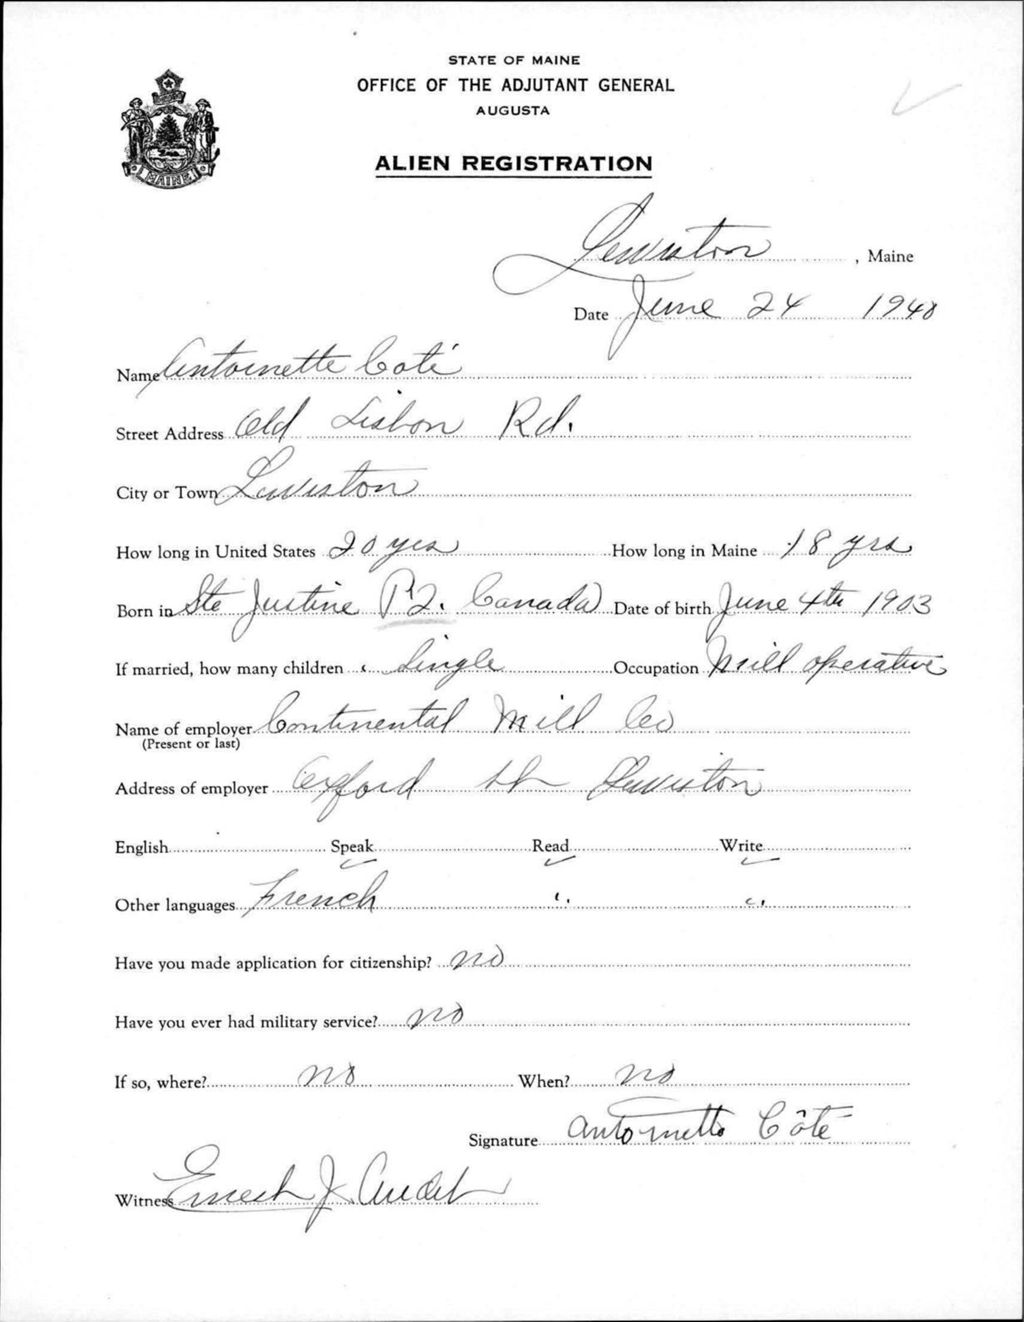 STATE OF MAINE
OFFICE OF THE ADJUTANT GENERAL
AUGUSTA
ALIEN REGISTRATION
MAINE
Lewiston, Maine
Date June 24 1940
Name Antoinette Coté
Street Address Old Lisbon Rd.
City or Town Lewiston
How long in United States 20 yrs How long in Maine 18 yrs
Born in Ste Justine P.Q. Canada Date of birth June 4th 1903
If married, how many children Single Occupation Mill operative
Name of employer Continental Mill Co
(Present or last)
Address of employer Oxford St Lewiston
English Speak ✓ Read ✓ Write ✓
Other languages French " "
Have you made application for citizenship? no
Have you ever had military service? no
If so, where? no When? no
Signature Antoinette Côté
Witness Ernest J. Audet